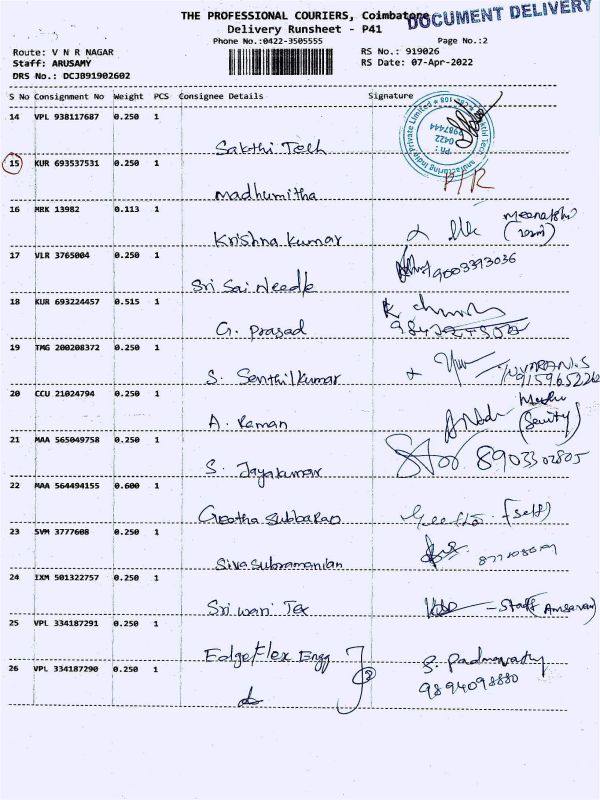 THE PROFESSIONAL COURIERS, Coimbatore
DOCUMENT DELIVERY
Delivery Runsheet - P41
Phone No.:0422-3505555
Page No.:2
Route: V N R NAGAR
RS No.: 919026
Staff: ARUSAMY
RS Date: 07-Apr-2022
DRS No.: DCJB91902602
S No Consignment No Weight PCS Consignee Details Signature
14 VPL 938117687 0.250 1
Sakthi Tech
PH : 0422
15 KUR 693537531 0.250 1
Madhumitha
16 MRK 13982 0.113 1
Krishna Kumar
17 VLR 3765004 0.250 1
Sri Sai Needle 9003393036
18 KUR 693224457 0.515 1
G. Prasad
19 TMG 200208372 0.250 1
S. Senthil Kumar
20 CCU 21024794 0.250 1
A. Raman
21 MAA 565049758 0.250 1
S. Jayakumar 8903302805
22 MAA 564494155 0.600 1
Geetha Subbarao (self)
23 SVM 3777608 0.250 1
Sivasubramanian
24 IXM 501322757 0.250 1
Sriwari Tex - Staff
25 VPL 334187291 0.250 1
Edgeflex Engg
S. Padmavathy
26 VPL 334187290 0.250 1
9894098880